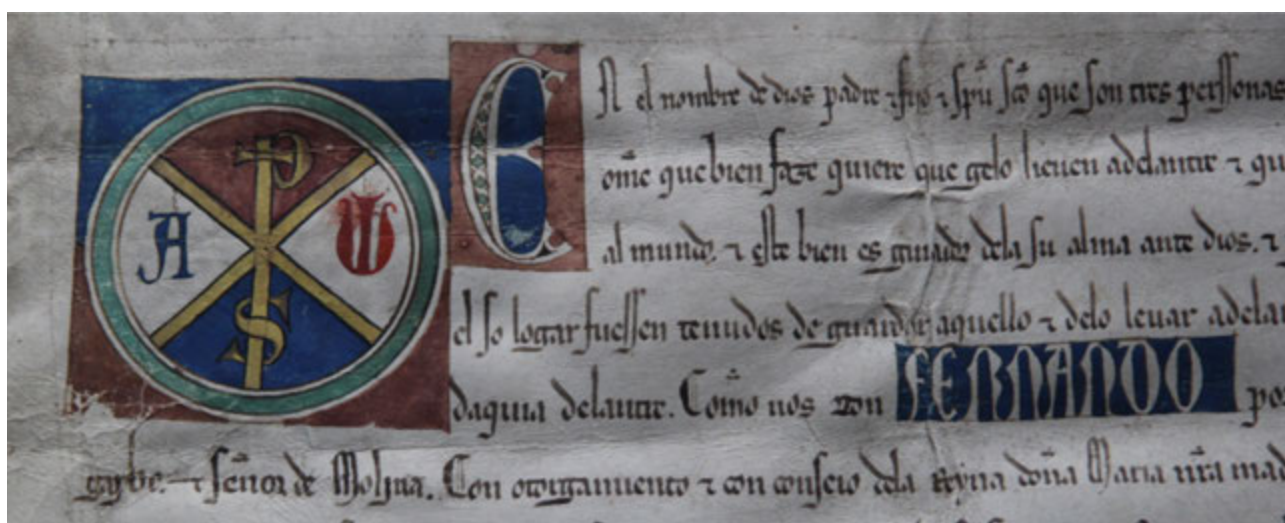 A P S W
EN el nombre de dios padre ⁊ fijo ⁊ spũ sc̃o que son tres perssonas
om̃e que bien faze quiere que gelo lieuen adelantre ⁊ q
al mundo. ⁊ este bien es guiador dela su alma ante dios. ⁊
el so logar fuessen tenudos de guardar aquello ⁊ delo leuar adela
daquia delantre. Com̃o nos don FERNANDO po
⁊ señor de Molina. Con otorgamiento ⁊ con conseio dela Reyna doña Maria nr̃a mad